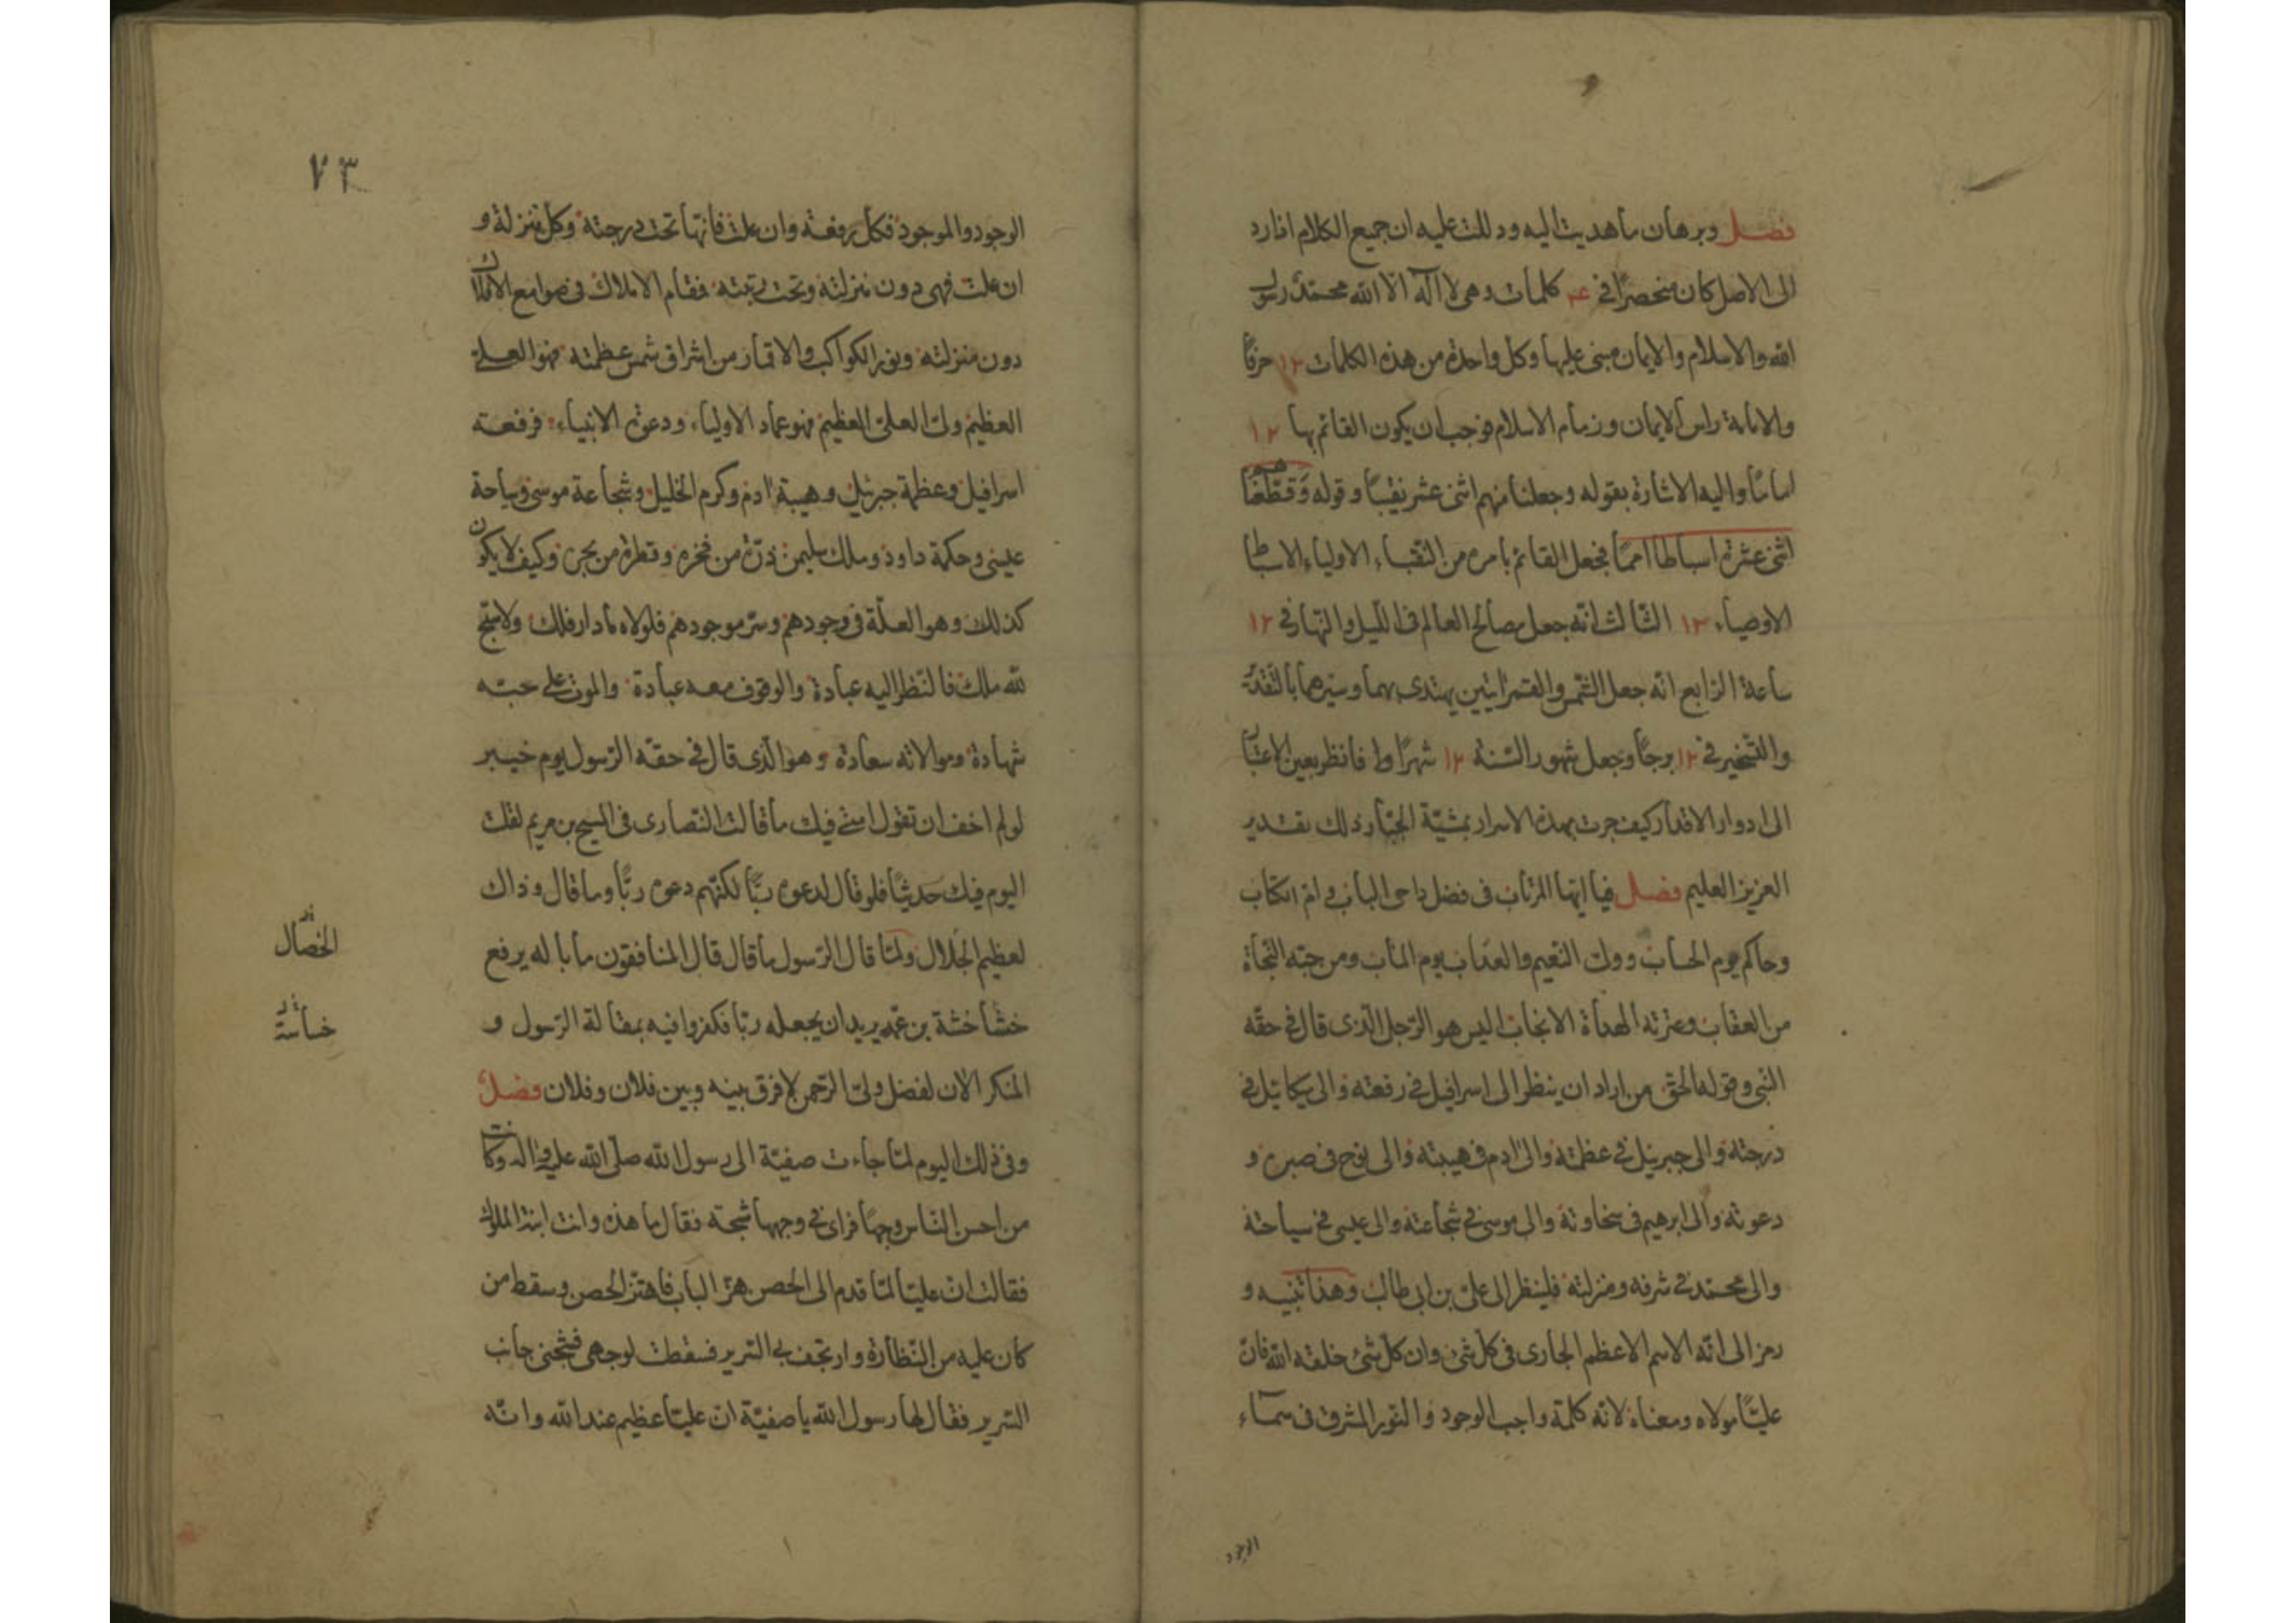 فصل وبرهان ما هديت اليه ودللت عليه ان جميع الكلام اذا رد
الى الاصل كان منحصرًا في ۴ كلمات وهى لا اله الا الله محمّد رسول
الله والاسلام والايمان مبنى عليها وكل واحدة من هذه الكلمات ۱۲ حرفًا
والامامة راس الايمان وزمام الاسلام فوجب ان يكون القائم بها ۱۲
امامًا واليه الاشارة بقوله وجعلنا منهم اثنى عشر نقيبًا وقوله وَقطّعناهم
اثنى عشرة اسباطا امما فجعل القائم بامره من النقباء الاولياء الاسباط
الاوصياء ۱۲ الثالث انه جعل مصالح العالم فى الليل والنهار فى ۱۲
ساعة الرابع انه جعل الشمس والقمر ايتين يهتدى بهما وسيرهما بالتقدير
والتسخير فى ۱۲ برجًا وجعل شهور السنة ۱۲ شهرًا فانظر بعين الاعتبار
الى ادوار الاقدار كيف جرت بهذه الاسرار بمشيّة الجبّار ذلك تقدير
العزيز العليم فصل فيا ايها المرتاب فى فضل داحى الباب وام الكتاب
وحاكم يوم الحساب وولى النعيم والعذاب يوم الماب ومن حبّه النجاة
من العقاب وعترته الهداة الانجاب اليس هو الرّجل الّذى قال فى حقّه
النبى وقوله الحق من اراد ان ينظر الى اسرافيل فى رفعته والى ميكائيل فى
درجته والى جبرئيل فى عظمته والى ادم فى هيبته والى نوح فى صبره و
دعوته والى ابرهيم فى سخاوته والى موسى فى شجاعته والى عيسى فى سياحته
والى محمّد فى شرفه ومنزلته فلينظر الى علىّ بن ابى طالب وهذا تنبيه و
رمز الى انّه الاسم الاعظم الجارى فى كل شئ وان كل شئ خلقه الله فان
عليًّا مولاه ومعناه لانّه كلمة واجب الوجود والنور المشرق فى سماء
الوجود
۷۳
الوجود والموجود فكل رفعة وان علت فانّها تحت درجته وكل منزلة و
ان علت فهى دون منزلته وتحت رتبته فقام الاملاك فى صوامع الافلاك
دون منزلته ونور الكواكب والاقمار من اشراق شمس عظمته فهو العلى
العظيم ولى العلىّ العظيم فهو عماد الاولياء ودعوة الانبياء فرفعة
اسرافيل وعظمة جبرئيل وهيبة ادم وكرم الخليل وشجاعة موسى وسياحة
عيسى وحكمة داود وملك سليمن ذرّة من فخره وقطرة من بحره وكيف لا يكون
كذلك وهو العلّة فى وجودهم وسرّ موجودهم فلولاه ما دار فلك ولا سبّح
لله ملك فالنظر اليه عبادة والوقوف معه عبادة والموت على حبّه
شهادة وموالاته سعادة وهو الّذى قال فى حقّه الرّسول يوم خيبر
لو لم اخف ان تقول امتى فيك ما قالت النصارى فى المسيح بن مريم لقلت
اليوم فيك حَديثًا فلو قال لدعوه ربًّا لكنّهم دعوه ربًّا وما قال وذاك
لعظيم الجَلال ولمّا قال الرّسول ما قال قال المنافقون ما باله يرفع
الخصال
خشاخشة بن عمّه يريد ان يجعله ربّا فكفروا فيه بمقالة الرّسول و
خساسة
المنكر الان لفضل ولىّ الرّحمن لا فرق بينه وبين فلان وفلان فصل
وفى ذلك اليوم لمّا جاءت صفيّة الى رسول الله صلّى الله عليه واله وكانت
من احسن النّاس وجهًا فراى فى وجهها شجّة فقال ما هذه وانت ابنة الملوك
فقالت ان عليّا لمّا قدم الى الحصن هزّ الباب فاهتزّ الحصن وسقط من
كان عليه من النظّارة وارتجف بى السّرير فسقطت لوجهى فشجّنى جانب
السّرير فقال لها رسول الله يا صفيّة ان عليّا عظيم عند الله وانّه